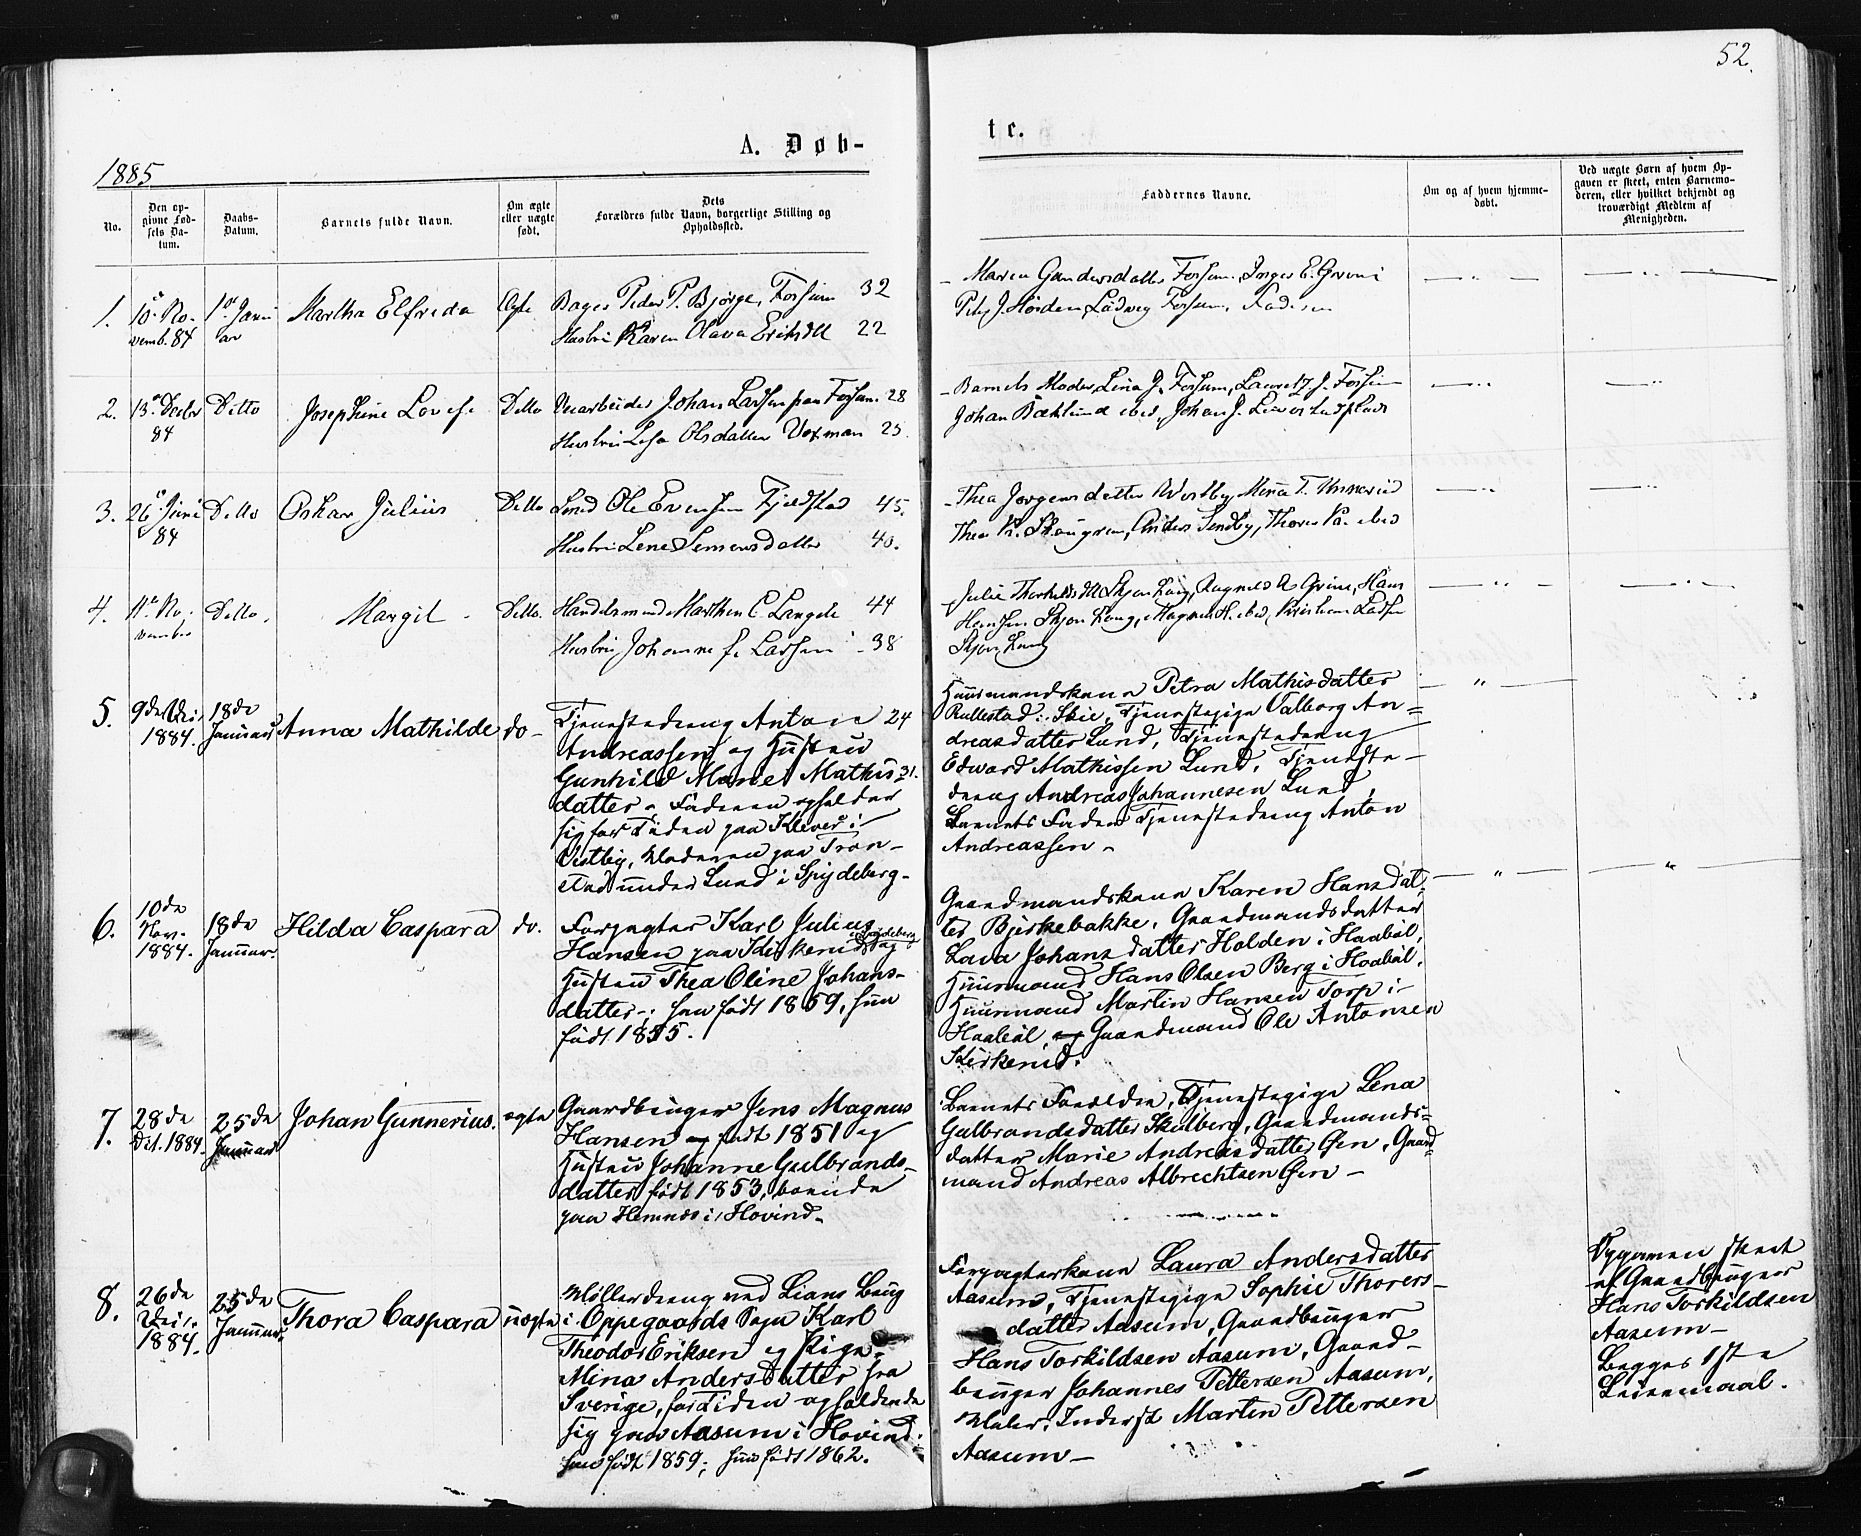 52.
A. Døb-
te.
1885
No.
Den op-
givne Fød-
sels Da-
tum.
Daabs-
Datum.
Barnets fulde Navn.
Om ægte
eller uægte
født.
Dets
Forældres fulde Navn, borgerlige Stilling og
Opholdssted.
Faddernes Navne.
Om og af hvem hjemme-
døbt.
Ved uægte Børn af hvem Op-
gaven er skeet, enten Barnemo-
deren, eller hvilket bekjendt og
troværdigt Medlem af
Menigheden.
1.
10. No-
vemb. 84
1st Janu
ar
Martha Elfrida
Ægte
Bager Peder P. Bjørge, Forsum 32
Hustru Karen Olava Eriksdtt 22
Maren Gundersdatter Forsum, Inger E.
Ludvig Forsum, Faderen
2.
13 Decbr
84
Ditto
Josephine Lovise
Ditto
Johan Larsen paa Forsum 28
Hustru Olsdatter 25
Barnets Moder, Lina J. Forsum, J. Forsum
Johan ibid, Johan J.
3.
26 Juni
84
Ditto
Oskar Julius
Ditto
Ole Evensen Fjeldstad 45.
Hustru Lene Semensdatter 40.
Thea Jørgensdatter Westby, T.
Thea Anders
4.
11 No-
vember
Ditto
Margit
Ditto
Handelsmand C. Langele 44
Hustru Johanne f. Larsen 38
Julie
5.
9de Dec.
1884.
18de
Januar
Anna Mathilde
do-
Tjenestedreng Anton 24
Andreassen og Hustru
Gunhild Marie Mathis- 31.
datter. Faderen opholder
sig for Tiden paa Klever i
Vestby, Moderen paa Tron-
stad under Lund i Spydeberg-
Huusmandskone Petra Mathisdatter
Rullestad i Skie, Tjenestepige Valborg An=
dreasdatter Lund, Tjenestedreng
Edward Mathissen Lund, Tjeneste-
dreng Andreas Johannesen Lund,
Barnets Fader Tjenestedreng Anton
Andreassen-
6.
10de
Nov.
1884.
18de
Januar.
Hilda Caspara
do.
Forpagter Karl Julius
Hansen paa Kirkerud i Spydeberg og
Hustru Thea Oline Johans-
datter-; han født 1859, hun
født 1855.
Gaardmandskone Karen Hansdat-
ter Bjerkebakke, Gaardmandsdatter
Lava Johansdatter Holden i Haabøl,
Huusmand Hans Olsen Berg i Haabøl,
Huusmand Martin Hansen Torp i
Haabøl, og Gaardmand Ole Antonsen
Kirkerud.
7.
28de
Oct. 1884.
25de
Januar
Johan Gunnerius.
ægte
Gaardbruger Jens Magnus
Hansen født 1851 og
Hustru Johanne Gulbrands-
datter født 1853, boende
paa Hemnes i Hovind.
Barnets Forældre, Tjenestepige Lena
Gulbrandsdatter Skulberg, Gaardmands=
datter Marie Andreasdatter Gen, Gaard=
mand Andreas Albrechtsen Gen-
8.
26de
Dec.
1884.
25de
Januar.
Thora Caspara
uægte
Møllerdreng ved Lians Brug
i Oppegaards Sogn Karl
Theodor Eriksen og Pige
Mina Andersdatter fra
Sverige, for Tiden opholdende
sig paa Aasum i Hovind.
han født 1859; hun født 1862.
Forpagterkone Laura Andersdatter
Aasum, Tjenestepige Sophie Thorers-
datter Aasum, Gaardbruger
Hans Torkildsen Aasum, Gaard-
bruger Johannes Pettersen Aasum,
Maler, Inderst Martin Pettersen
Aasum-
Opgaven skeet
af Gaardbruger
Hans Torkildsen
Aasum-
Begges 1ste
Leiermaal.